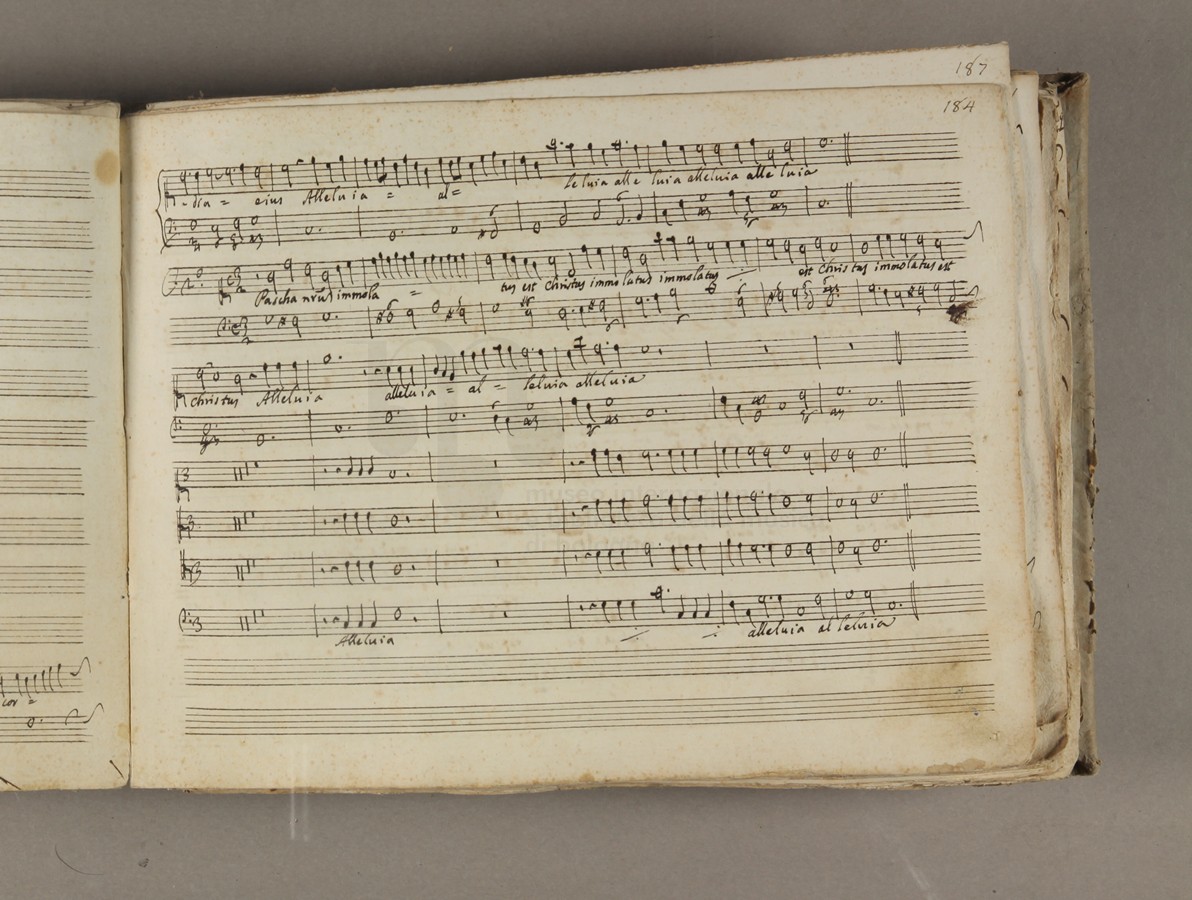 187
184
-dia = eius Alleluia = al= leluia alle luia alleluia alle luia
Pascha nr̃ũ immola = tus est Christus immolatus immolatus est Christus immolatus est
Christus Alleluia alleluia = al = leluia alleluia
Alleluia alleluia al leluia
cor =
museo